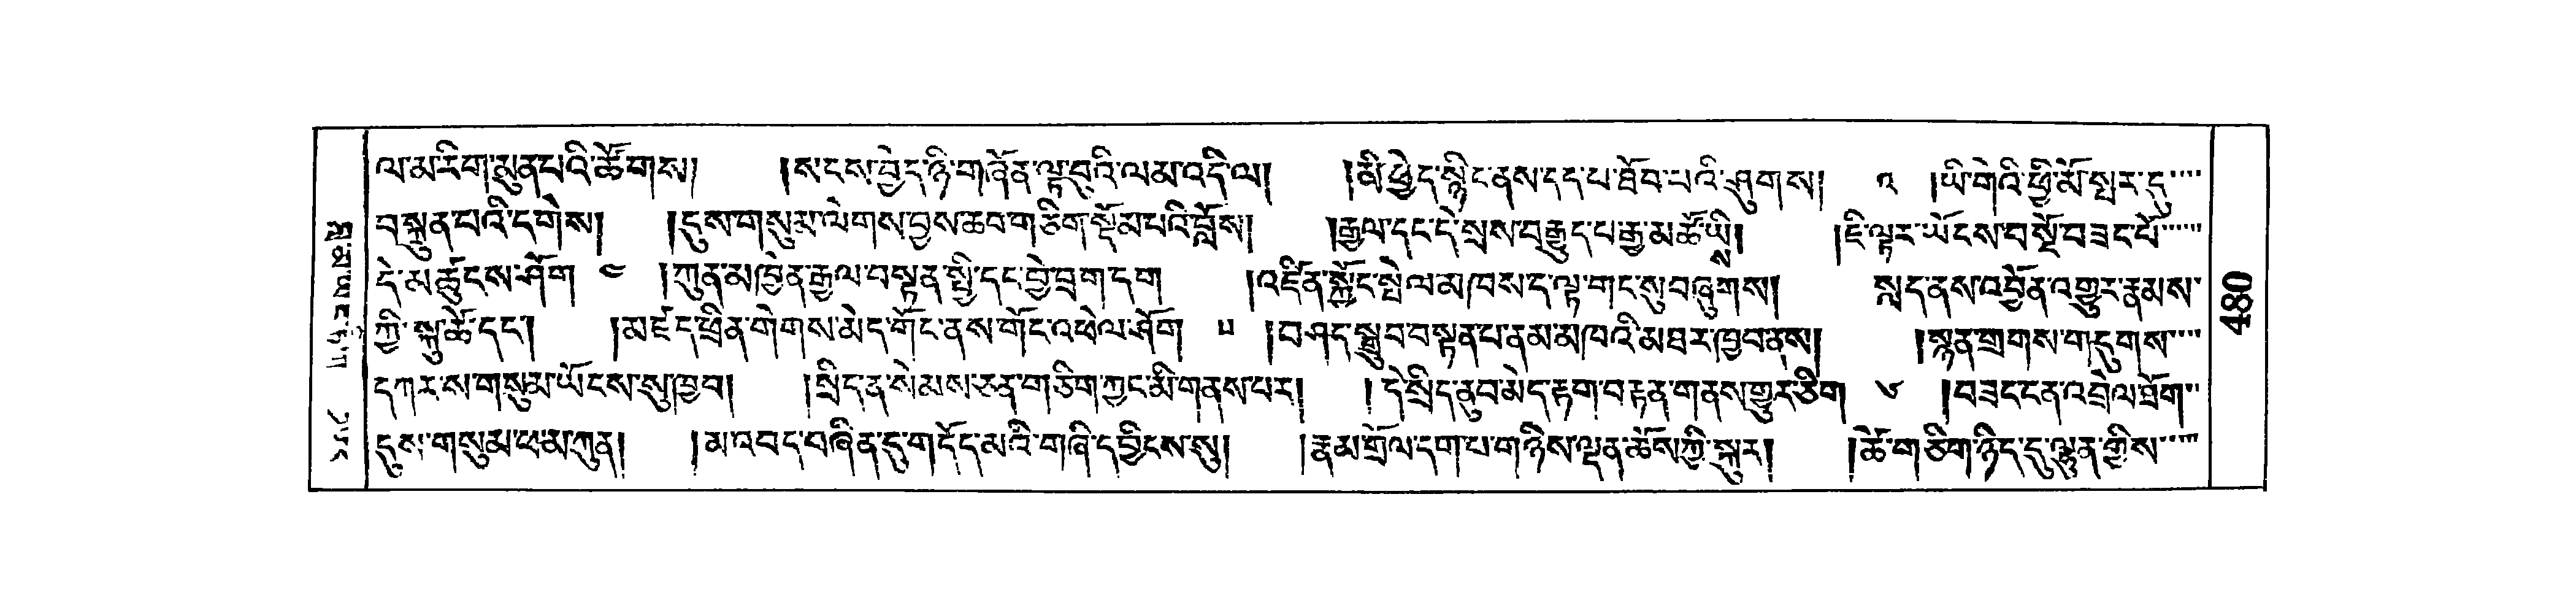 ལ་མ་རིག་མུན་པའི་ཚོགས། །ས་ངས་བྱེད་ཉི་གཞོན་ལྟ་བུའི་ལམ་འདི་ལ། །མི་ཕྱེད་སྙིང་ནས་དད་པ་ཐོབ་པའི་ཤུགས། ༣ །ཡི་གེའི་ཕྱི་མོ་སྤར་དུ་་་་
བསྐྲུན་པའི་དགེས། །དུས་གསུམ་ལེགས་བྱས་ཆབ་གཅིག་སྡོམ་པའི་བློས། །རྒྱལ་དང་དེ་སྲས་བརྒྱུད་པ་རྒྱ་མཚོ་ཡི། །ཇི་ལྟར་ཡོངས་བསྔོ་བཟང་པོ་་་་་
དེ་མཚུངས་ཤོག ༤ །ཀུན་མཁྱེན་རྒྱལ་བསྟན་སྤྱི་དང་བྱེ་བྲག་དག །འཛིན་སྐྱོང་སྤེལ་མཁས་ད་ལྟ་གང་སུ་བཞུགས། སླད་ནས་འབྱོན་འགྱུར་རྣམས་
ཀྱི་སྐུ་ཚེ་དང་། །མཛད་ཕྲིན་གེགས་མེད་གོང་ནས་གོང་འཕེལ་ཤོག ༥ །བཤད་སྒྲུབ་བསྟན་པ་ནམ་མཁའི་མཐར་ཁྱབ་ནས། །སྙན་གྲགས་གདུགས་་་་
དཀར་ས་གསུམ་ཡོངས་སུ་ཁྱབ། །སྲིད་ན་སེམས་ཅན་གཅིག་ཀྱང་མི་གནས་པར། །དེ་སྲིད་ནུབ་མེད་རྟག་བརྟན་གནས་གྱུར་ཅིག ༦ །བཟང་ངན་འབྲེལ་ཐོག་་
དུས་གསུམ་ཕ་མ་ཀུན། །མ་འབད་བཞིན་དུ་གདོད་མའི་གཞི་དབྱིངས་སུ། །རྣམ་གྲོལ་དག་པ་གཉིས་ལྡན་ཆོས་ཀྱི་སྐུར། །ཚེ་གཅིག་ཉིད་དུ་ལྷུན་གྱིས་་་་
840